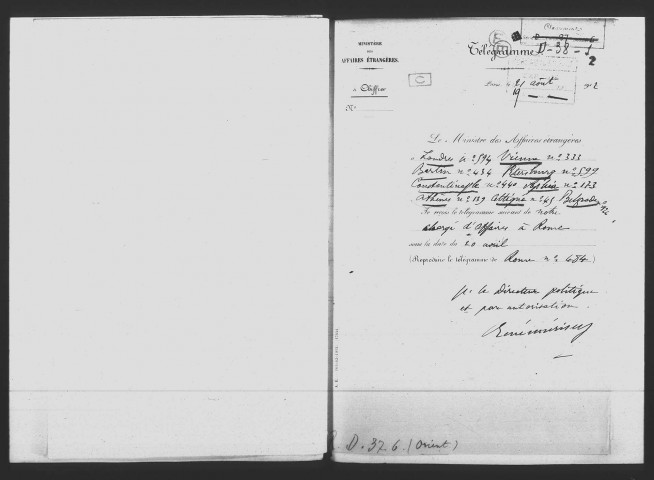 MINISTÈRE
DES
AFFAIRES ÉTRANGÈRES.
à Chiffrer
N°
C
Classement
D-37-6
Télégramme. D-38-1
2
Paris, le 21 août
19 2
Le Ministre des Affaires étrangères
à Londres n° 594 Vienne n° 333
Berlin n° 434 Pétersbourg n° 599
Constantinople n° 440 Sophia n° 173
Athènes n° 139 Cettigné n° 45 Belgrade n°
Je reçois le télégramme suivant de notre
chargé d'affaires à Rome
sous la date du 20 août
(Reproduire le télégramme de Rome n°
p. le Directeur politique
et par autorisation.
D-37-6. (Orient)